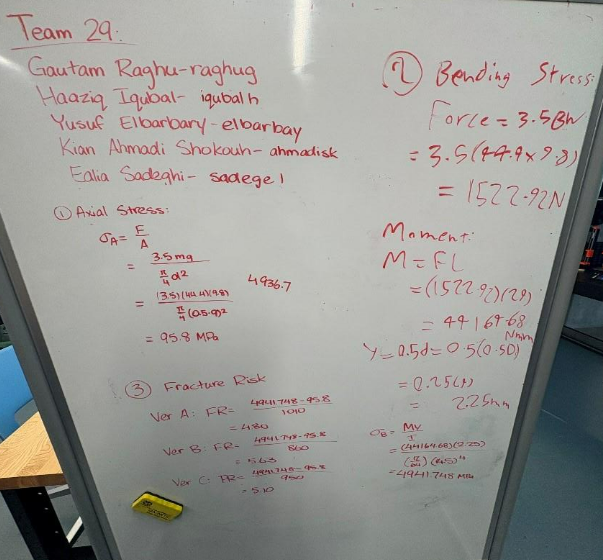 Team 29:
Gautam Raghu-raghug
Haaziq Iqubal- iqubalh
Yusuf Elbarbary-elbarbay
Kian Ahmadi Shokouh-ahmadisk
Ealia Sadeghi- sadege1
① Axial Stress:
σA = F/A
= 3.5mg / π/4 d²
= (3.5)(44.4)(9.8) / π/4 (0.5·9)²
4936.7
= 95.8 MPa
③ Fracture Risk
Ver A: FR= 4941748-95.8 / 1010
= 480
Ver B: FR= 4941748-95.8 / 860
= 563
Ver C: FR= 4941748-95.8 / 950
= 510
② Bending Stress:
Force = 3.5BW
= 3.5(44.4x9.8)
= 1522.92N
Moment:
M = FL
= (1522.92)(29)
= 44164.68
Nmm
Y = 0.5d = 0.5(0.5D)
= 0.25(9)
= 2.25mm
σB = My / I
= (44164.68)(2.25)
= 4941748 MPa